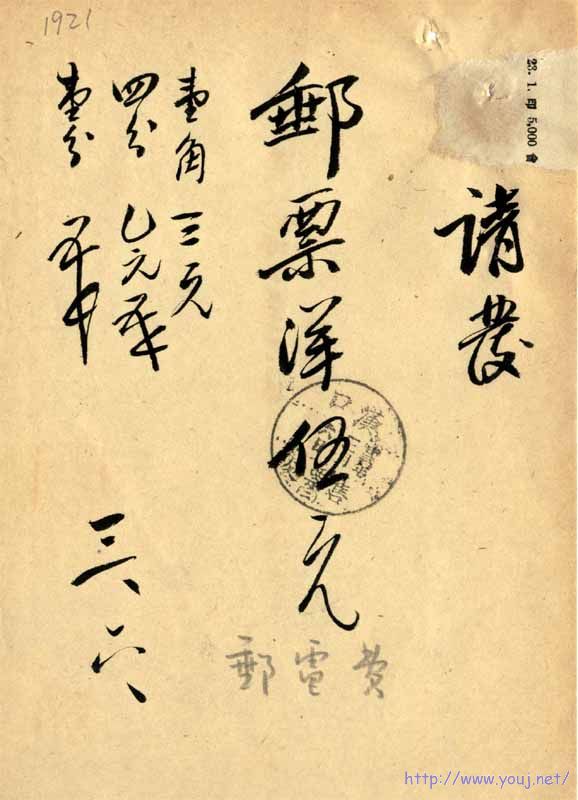 1921
23. 1. 印 5,000 會
請發
郵票洋伍元
壹角 三元
四分 乙元半
壹分 半
三、六、
郵電費
http://www.youj.net/